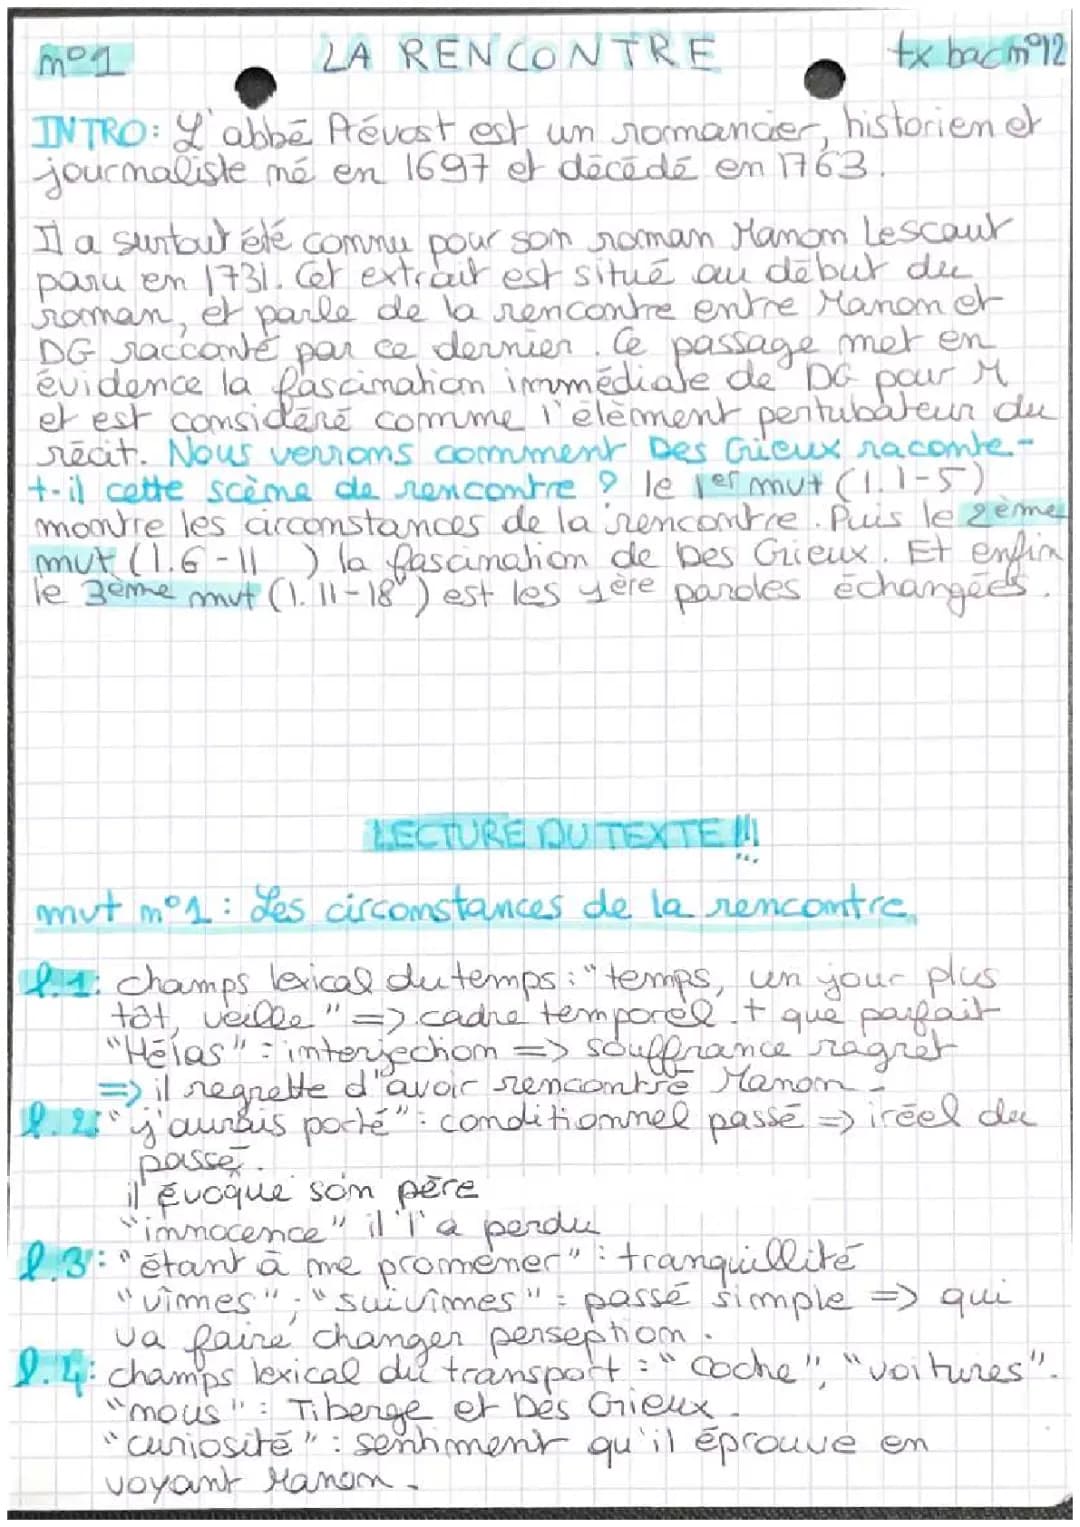 n°1 LA RENCONTRE tx bac n°12
INTRO: L'abbé Prévost est un romancier, historien et
journaliste né en 1697 et décédé en 1763.
Il a surtout été connu pour son roman Manon Lescaut
paru en 1731. Cet extrait est situé au début du
roman, et parle de la rencontre entre Manon et
DG racconté par ce dernier. Ce passage met en
évidence la fascination immédiate de DG pour M
et est considéré comme l'élément pertubateur du
récit. Nous verrons comment Des Grieux raconte-
t-il cette scène de rencontre ? le 1er mvt (l.1-5)
montre les circonstances de la rencontre. Puis le 2ème
mvt (l.6-11 ) la fascination de Des Grieux. Et enfin
le 3ème mvt (l.11-18) est les 1ère paroles échangées.
LECTURE DU TEXTE !!!
mvt n°1 : Les circonstances de la rencontre.
l.1: champs lexical du temps : "temps, un jour plus
tôt, veille" => cadre temporel. + que parfait
"Hélas" : interjection => souffrance ragrèt
=> il regrette d'avoir rencontré Manon.
l.2: "j'aurais porté" : conditionnel passé => iréel du
passé.
il évoque son père
"innocence" il l'a perdu
l.3: "étant à me promener" : tranquillité
"vîmes" ; "suivîmes" : passé simple => qui
va faire changer perseption.
l.4: champs lexical du transport : "Coche", "voitures".
"nous" : Tiberge et Des Grieux.
"curiosité" : sentiment qu'il éprouve en
voyant Manon.